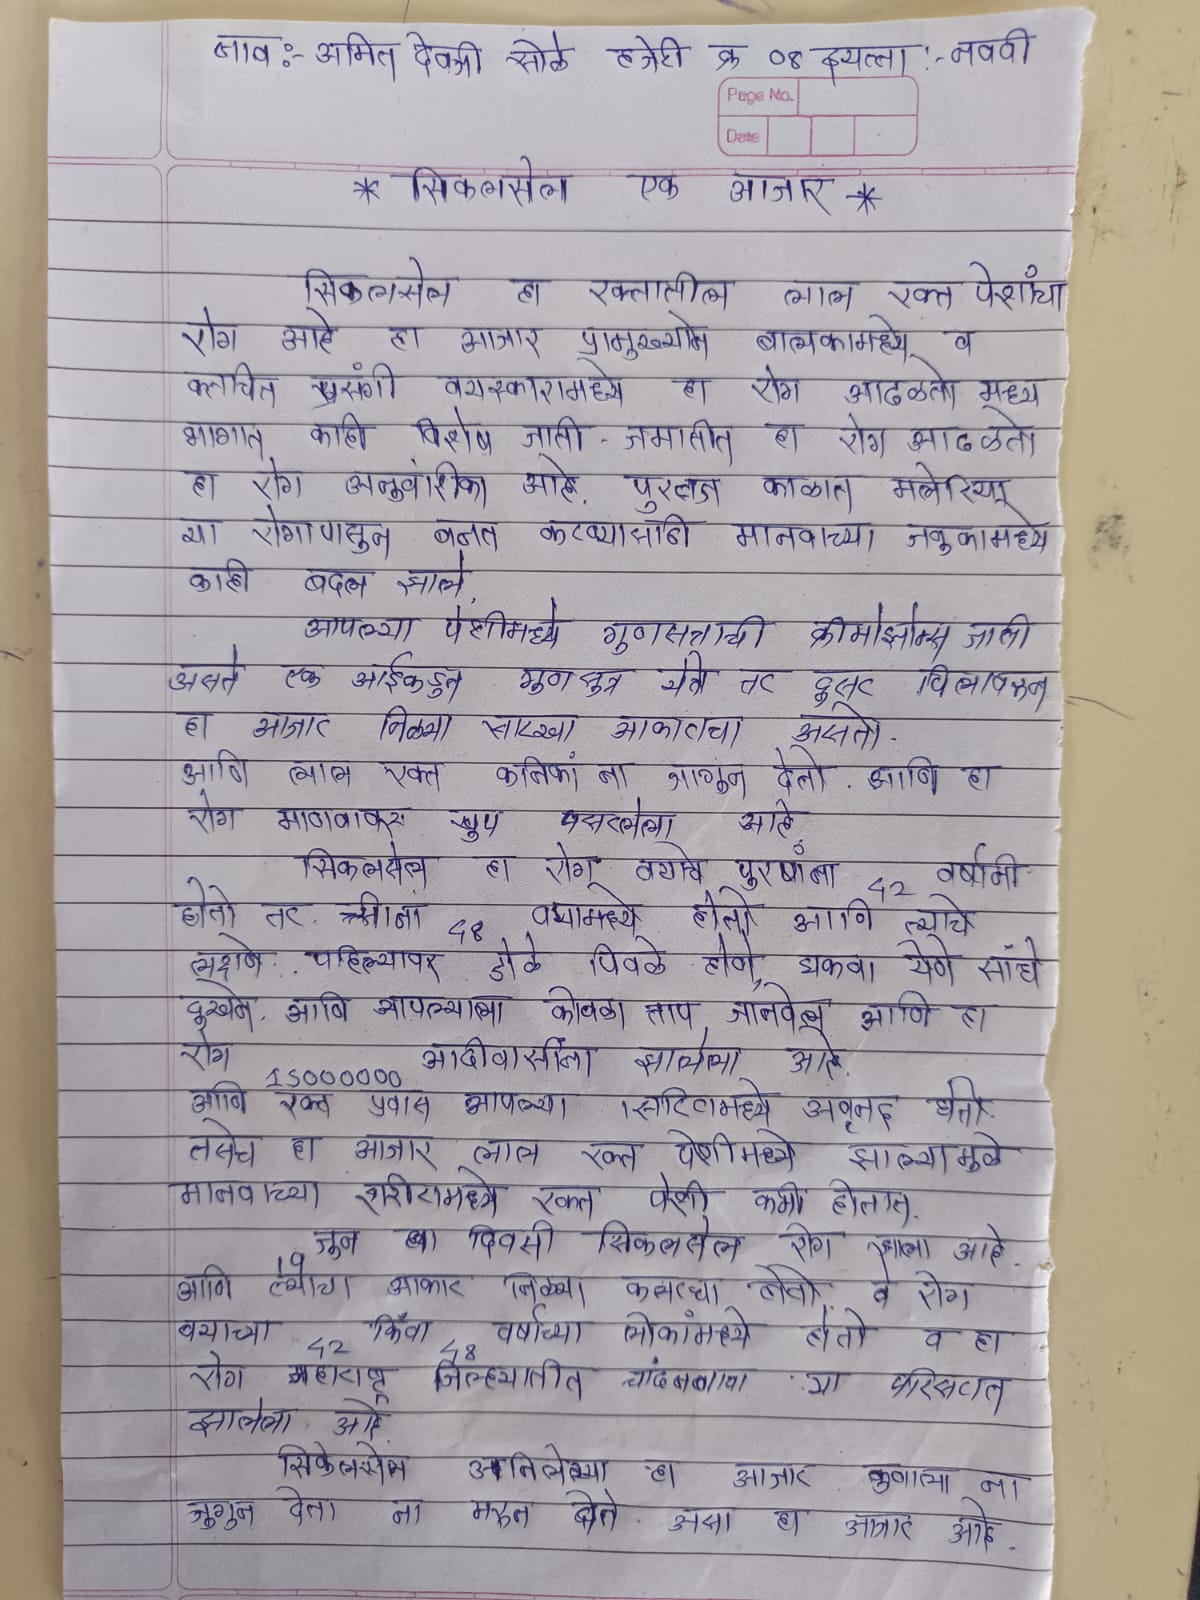 नाव:- अमित देवजी सोळे हजेरी क्र 08 इयत्ता :- नववी
Page No.
Date
* सिकलसेल एक आजार *
सिकलसेल हा रक्तातील लाल रक्त पेशींचा
रोग आहे हा आजार प्रामुख्याने बालकामध्ये व
क्वचित प्रसंगी वयस्कारामध्ये हा रोग आढळतो मध्य
भागात काही विशेष जाती - जमातीत हा रोग आढळतो
हा रोग अनुवांशीका आहे. पुरातन काळात मलेरिया
या रोगापासुन बचत करण्यासाठी मानवाच्या जनुकामध्ये
काही बदल झाले.
आपल्या पेशीमध्ये गुणसत्राची क्रोमोझोम्स जाती
असते एक आईकडुन गुणसुत्र येते तर दुसर वडिलाकडुन
हा आजार विळ्या सारखा आकाराचा असतो.
आणि लाल रक्त कनिकां ना मागुन देतो. आणि हा
रोग मानवावर खुप पसरलेला आहे.
सिकलसेल हा रोग वयाचे पुरषांना 42 वर्षांनी
होतो तर स्त्रीनां 48 वयामध्ये होतो आणि त्याचे
लक्षणे. पहिल्यावर डोळे पिवळे होणे, थकवा येणे सांधे
दुखने. आणि आपल्याला कोवळा ताप जानवेल आणि हा
रोग 15000000 आदीवासींना झालेला आहे.
आणि रक्त प्रवास आपल्या शरिरामध्ये घेतो.
तसेच हा आजार लाल रक्त पेशीमध्ये झाल्यामुळे
मानवाच्या शरीरामध्ये रक्त पेशी कमी होतात.
19 जुन ह्या दिवसी सिकलसेल रोग झाला आहे.
आणि त्याचा आकार विळ्या होतो. व रोग
वयाच्या 42 किंवा 48 वर्षाच्या लोकांमध्ये होतो व हा
रोग महाराष्ट्र जिल्ह्यातील या परिसरात
झालेला आहे.
सिकेलसेल हा आजार कुणाला ना
जगुन देता ना मरुन देते. असा हा आजार आहे.